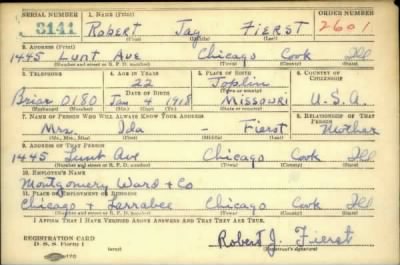 SERIAL NUMBER 1. NAME (Print) ORDER NUMBER
3141 Robert Jay Fierst 2601
(First) (Middle) (Last)
2. ADDRESS (Print)
1445 Lunt Ave Chicago Cook Ill
(Number and street or R. F. D. number) (Town) (County) (State)
3. TELEPHONE 4. AGE IN YEARS 5. PLACE OF BIRTH 6. COUNTRY OF CITIZENSHIP
22 Joplin
DATE OF BIRTH (Town or county)
Briar 0180 Jan 4 1918 Missouri U.S.A.
(Exchange) (Number) (Mo.) (Day) (Yr.) (State or country)
7. NAME OF PERSON WHO WILL ALWAYS KNOW YOUR ADDRESS 8. RELATIONSHIP OF THAT PERSON
Mrs. Ida - Fierst Mother
(Mr., Mrs., Miss) (First) (Middle) (Last)
9. ADDRESS OF THAT PERSON
1445 Lunt Ave Chicago Cook Ill
(Number and street or R. F. D. number) (Town) (County) (State)
10. EMPLOYER'S NAME
Montgomery Ward & Co
11. PLACE OF EMPLOYMENT OR BUSINESS
Chicago & Larrabee Chicago Cook Ill
(Number and street or R. F. D. number) (Town) (County) (State)
I AFFIRM THAT I HAVE VERIFIED ABOVE ANSWERS AND THAT THEY ARE TRUE.
REGISTRATION CARD
D. S. S. Form 1 Robert J. Fierst
(Registrant's signature)